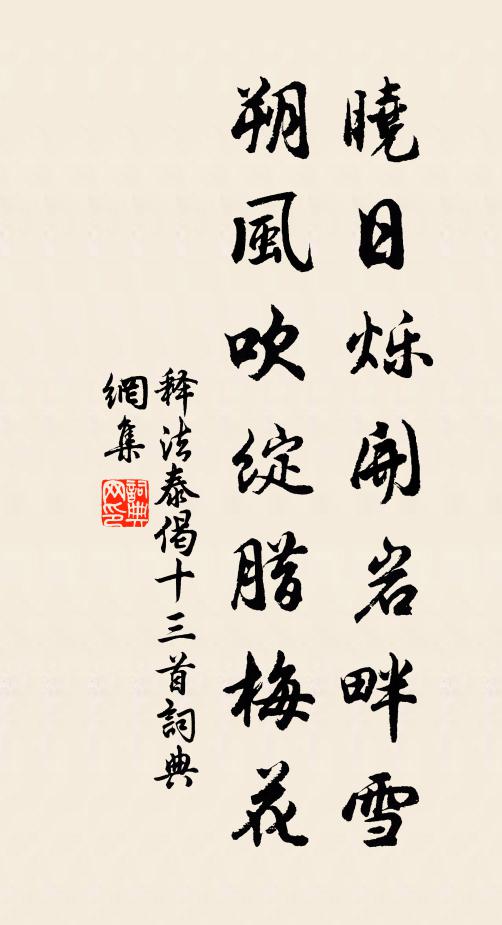 曉日烁開岩畔雪
朔風吹綻腊梅花
释法泰偈十三首詞典
網集
詞典
网印